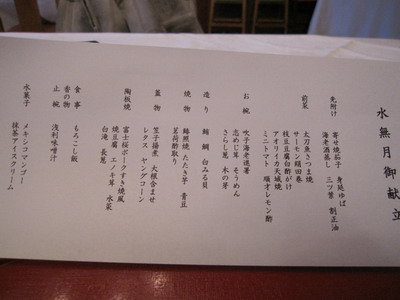 水無月御献立
先附け 寄せ焼茄子 身延ゆば
海老酒蒸し 三ツ葉 割正油
前菜 太刀魚さつま焼
サーモン絹田巻
枝豆豆腐白酢がけ
アオリイカ天城焼
ミニトマト 磯才レモン酢
お椀 吹子海老進著
志めじ茸 そうめん
さらし葱 木の芽
造り 鮪 鯛 白みる貝
焼物 鰆照焼 たたき芋 青豆
茗荷酢取り
蓋物 里子揚煮 大根含ませ
レタス ヤングコーン
陶板焼 富士桜ポークすき焼風
焼豆腐 エノキ茸 水菜
白滝 長葱
食事 もろこし飯
香の物
止椀 浅利味噌汁
水菓子 メキシコマンゴー
抹茶アイスクリーム